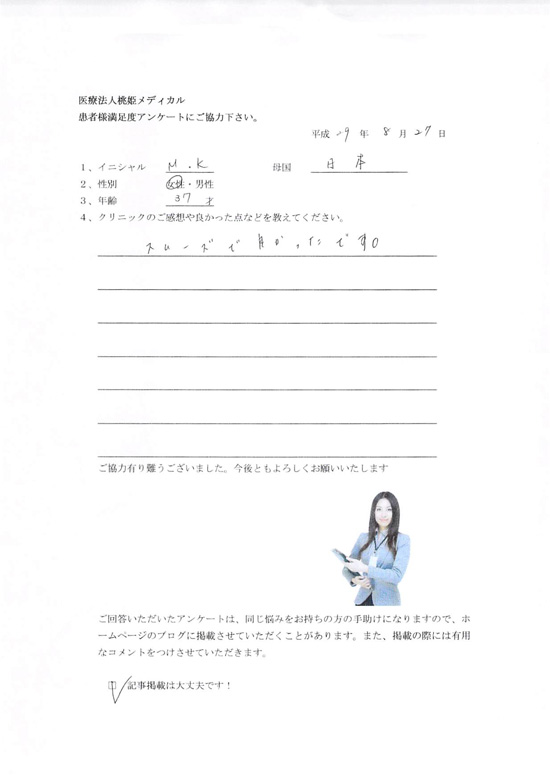 医療法人桃姫メディカル
患者様満足度アンケートにご協力下さい。
平成 29 年 8 月 27 日
1、イニシャル M.K 母国 日本
2、性別 女性・男性
3、年齢 37 才
4、クリニックのご感想や良かった点などを教えてください。
スムーズで良かったです。
ご協力有り難うございました。今後ともよろしくお願いいたします
ご回答いただいたアンケートは、同じ悩みをお持ちの方の手助けになりますので、ホ
ームページのブログに掲載させていただくことがあります。また、掲載の際には有用
なコメントをつけさせていただきます。
記事掲載は大丈夫です!